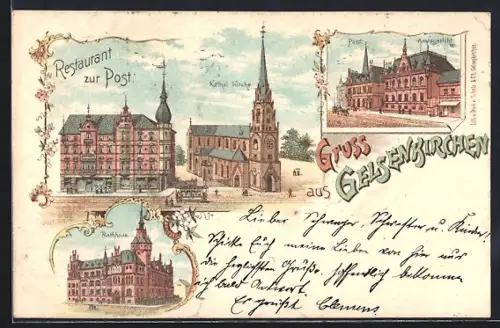 Restaurant
zur Post.
Kathol. Kirche
Post.
Amtsgericht
Gruss
aus
Gelsenkirchen
Rathhaus
Lieber Schwager, u. Kinder!
Schicke Euch meine Lieben von hier nur
die herzlichsten Grüße. Hoffentlich bekomme
ich bald Antwort.
Es grüsst Clemens